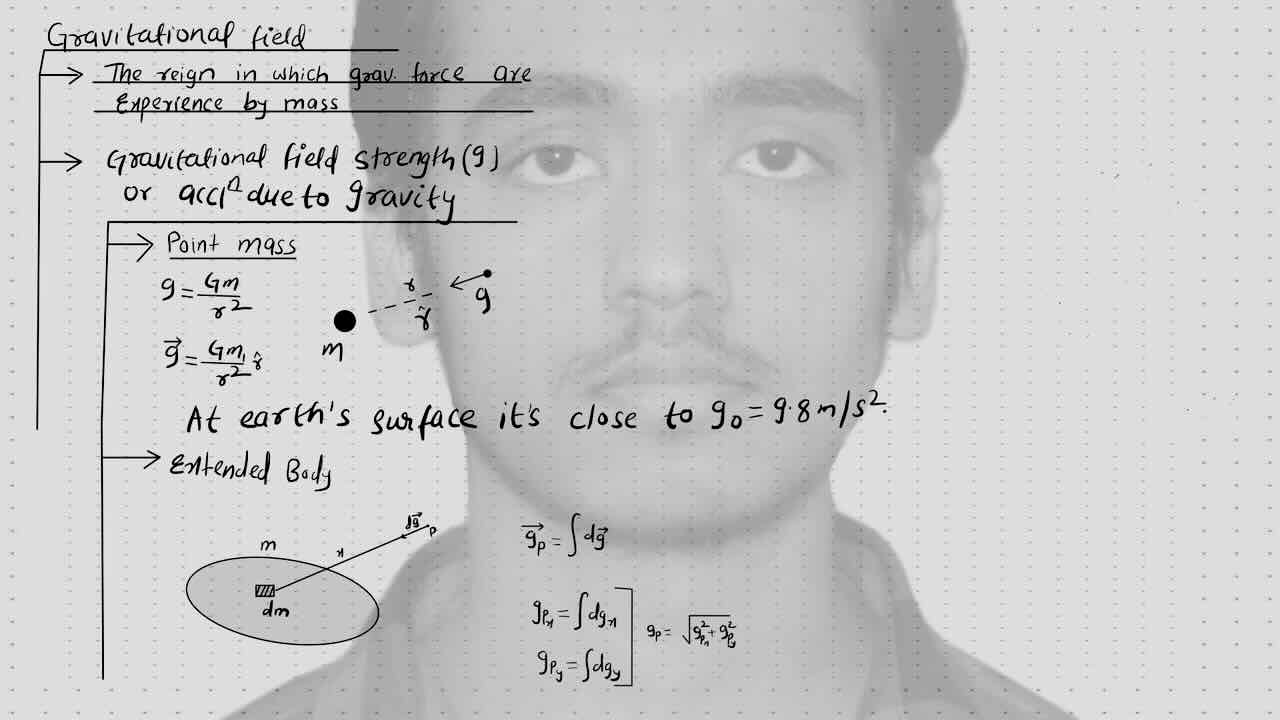 Gravitational field
The reign in which grav. force are
Experience by mass
Gravitational field strength (g)
or accⁿ due to gravity
Point mass
g = Gm/r²
r
r̂
g
m
g⃗ = Gm/r² r̂
At earth's surface it's close to g₀ = 9.8 m/s².
Extended Body
dg⃗
P
m
r
dm
g⃗ₚ = ∫dg⃗
gPx = ∫dgx
gPy = ∫dgy
gP = √(gPx² + gPy²)